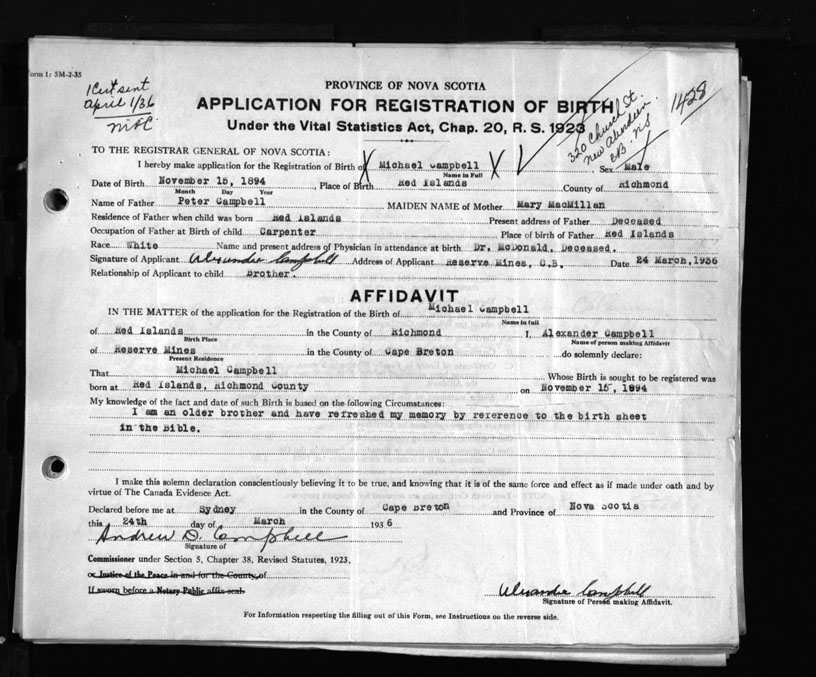 Form 1: 5M-2-35
1 Cert sent
April 1/36
PROVINCE OF NOVA SCOTIA
APPLICATION FOR REGISTRATION OF BIRTH
Under the Vital Statistics Act, Chap. 20, R. S. 1923
320 Church St.
New Aberdeen
CB. NS
1428
TO THE REGISTRAR GENERAL OF NOVA SCOTIA:
I hereby make application for the Registration of Birth of X Michael Campbell X Sex Male
Name in Full
Date of Birth November 15, 1894 Place of Birth Red Islands County of Richmond
Month Day Year
Name of Father Peter Campbell MAIDEN NAME of Mother Mary MacMillan
Residence of Father when child was born Red Islands Present address of Father Deceased
Occupation of Father at Birth of child Carpenter Place of birth of Father Red Islands
Race White Name and present address of Physician in attendance at birth Dr. McDonald, Deceased.
Signature of Applicant Alexander Campbell Address of Applicant Reserve Mines, C.B. Date 24 March, 1936
Relationship of Applicant to child Brother.
AFFIDAVIT
IN THE MATTER of the application for the Registration of the Birth of Michael Campbell
Name in full
of Red Islands in the County of Richmond I, Alexander Campbell
Birth Place Name of person making Affidavit
of Reserve Mines in the County of Cape Breton do solemnly declare:
Present Residence
That Michael Campbell Whose Birth is sought to be registered was
born at Red Islands, Richmond County on November 15, 1894
My knowledge of the fact and date of such Birth is based on the following Circumstances:
I am an older brother and have refreshed my memory by reference to the birth sheet
in the Bible.
I make this solemn declaration conscientiously believing it to be true, and knowing that it is of the same force and effect as if made under oath and by
virtue of The Canada Evidence Act.
Declared before me at Sydney in the County of Cape Breton and Province of Nova Scotia
this 24th day of March 1936
Andrew D. Campbell
Signature of
Commissioner under Section 5, Chapter 38, Revised Statutes, 1923,
or Justice of the Peace in and for the County of
If sworn before a Notary Public affix seal.
Alexander Campbell
Signature of Person making Affidavit.
For Information respecting the filling out of this Form, see Instructions on the reverse side.